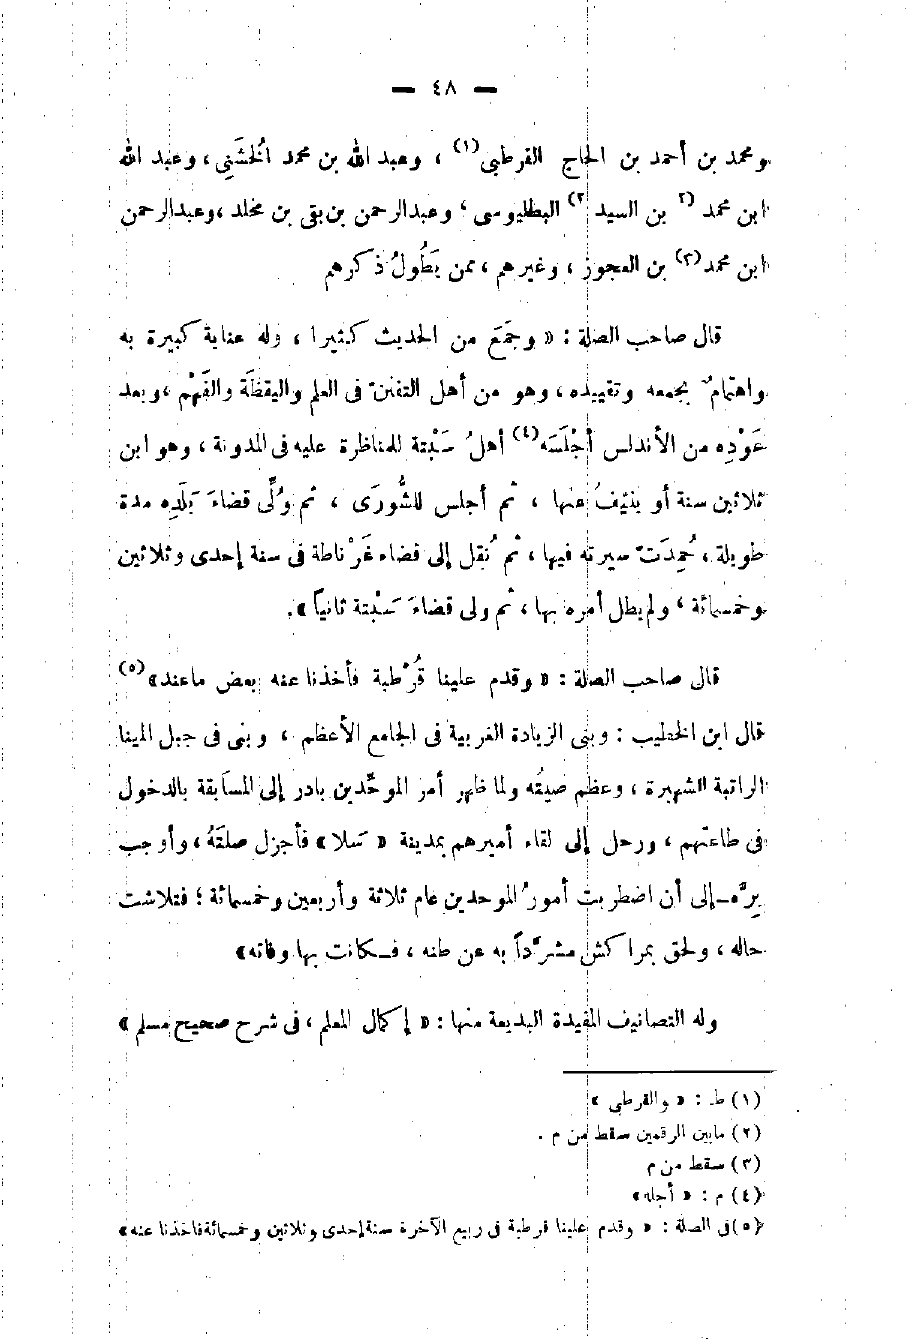 — ٤٨ —
ومحمد بن أحمد بن الحاج القرطبى(١) ، وعبد الله بن محمد الُخشَنِى ، وعبد الله
ابن محمد (٢ بن السيد ٢) البطليوسى ، وعبدالرحمن بن بقى بن مخلد ،وعبدالرحمن
ابن محمد(٣) بن العجوز ، وغيرهم ، ممن يَطُولُ ذكرهم
قال صاحب الصلة : « وجَمَعَ من الحديث كثيرا ، وله عناية كبيرة به
واهتمامٌ بجمعه وتقييده ، وهو من أهل التفنّن فى العلم واليقظَة والفَهْم ، وبعد
عَوْدِه من الأندلس أَجْلَسَه(٤) أهلُ سَبْتة للمناظرة عليه فى المدونة ، وهو ابن
ثلاثين سنة أو ينيّفُ عنها ، ثم أجلس للشُّورَى ، ثم وُلِّى قضاءَ بَلَدِه مدة
طويلة ، حُمِدَتْ سيرته فيها ، ثم نُقِل إلى قضاء غَرْناطة فى سنة إحدى وثلاثين
وخمسمائة ، ولم يطل أمره بها ، ثم ولى قضاءَ سَبْتة ثانياً » .
قال صاحب الصلة : « وقدم علينا قُرْطبة فأخذنا عنه بعض ماعنده»(٥)
قال ابن الخطيب : وبنى الزيادة الغربية فى الجامع الأعظم ، وبنى فى جبل المينا
الراتبة الشهيرة ، وعظم صيتُه ولما ظهر أمر الموحِّدين بادر إلى المسابقة بالدخول
فى طاعتهم ، ورحل إلى لقاء أميرهم بمدينة « سَلا » فأجزل صلتَهُ ، وأوجب
بِرَّه ـ إلى أن اضطربت أمورُ الموحدين عام ثلاثة وأربعين وخمسمائة ؛ فتلاشت
حاله ، ولحق بمراكش مشرَّداً به عن طنه ، فـكانت بها وفاته»
وله التصانيف المفيدة البديعة منها : « إكمال المعلم ، فى شرح صحيح مسلم »
(١) ط : « والقرطبى »
(٢) مابين الرقمين سقط من م .
(٣) سقط من م
(٤) م : « أجله»
(٥) فى الصلة : « وقدم علينا قرطبة فى ربيع الآخرة سنة إحدى وثلاثين وخمسمائة فاخذنا عنه»